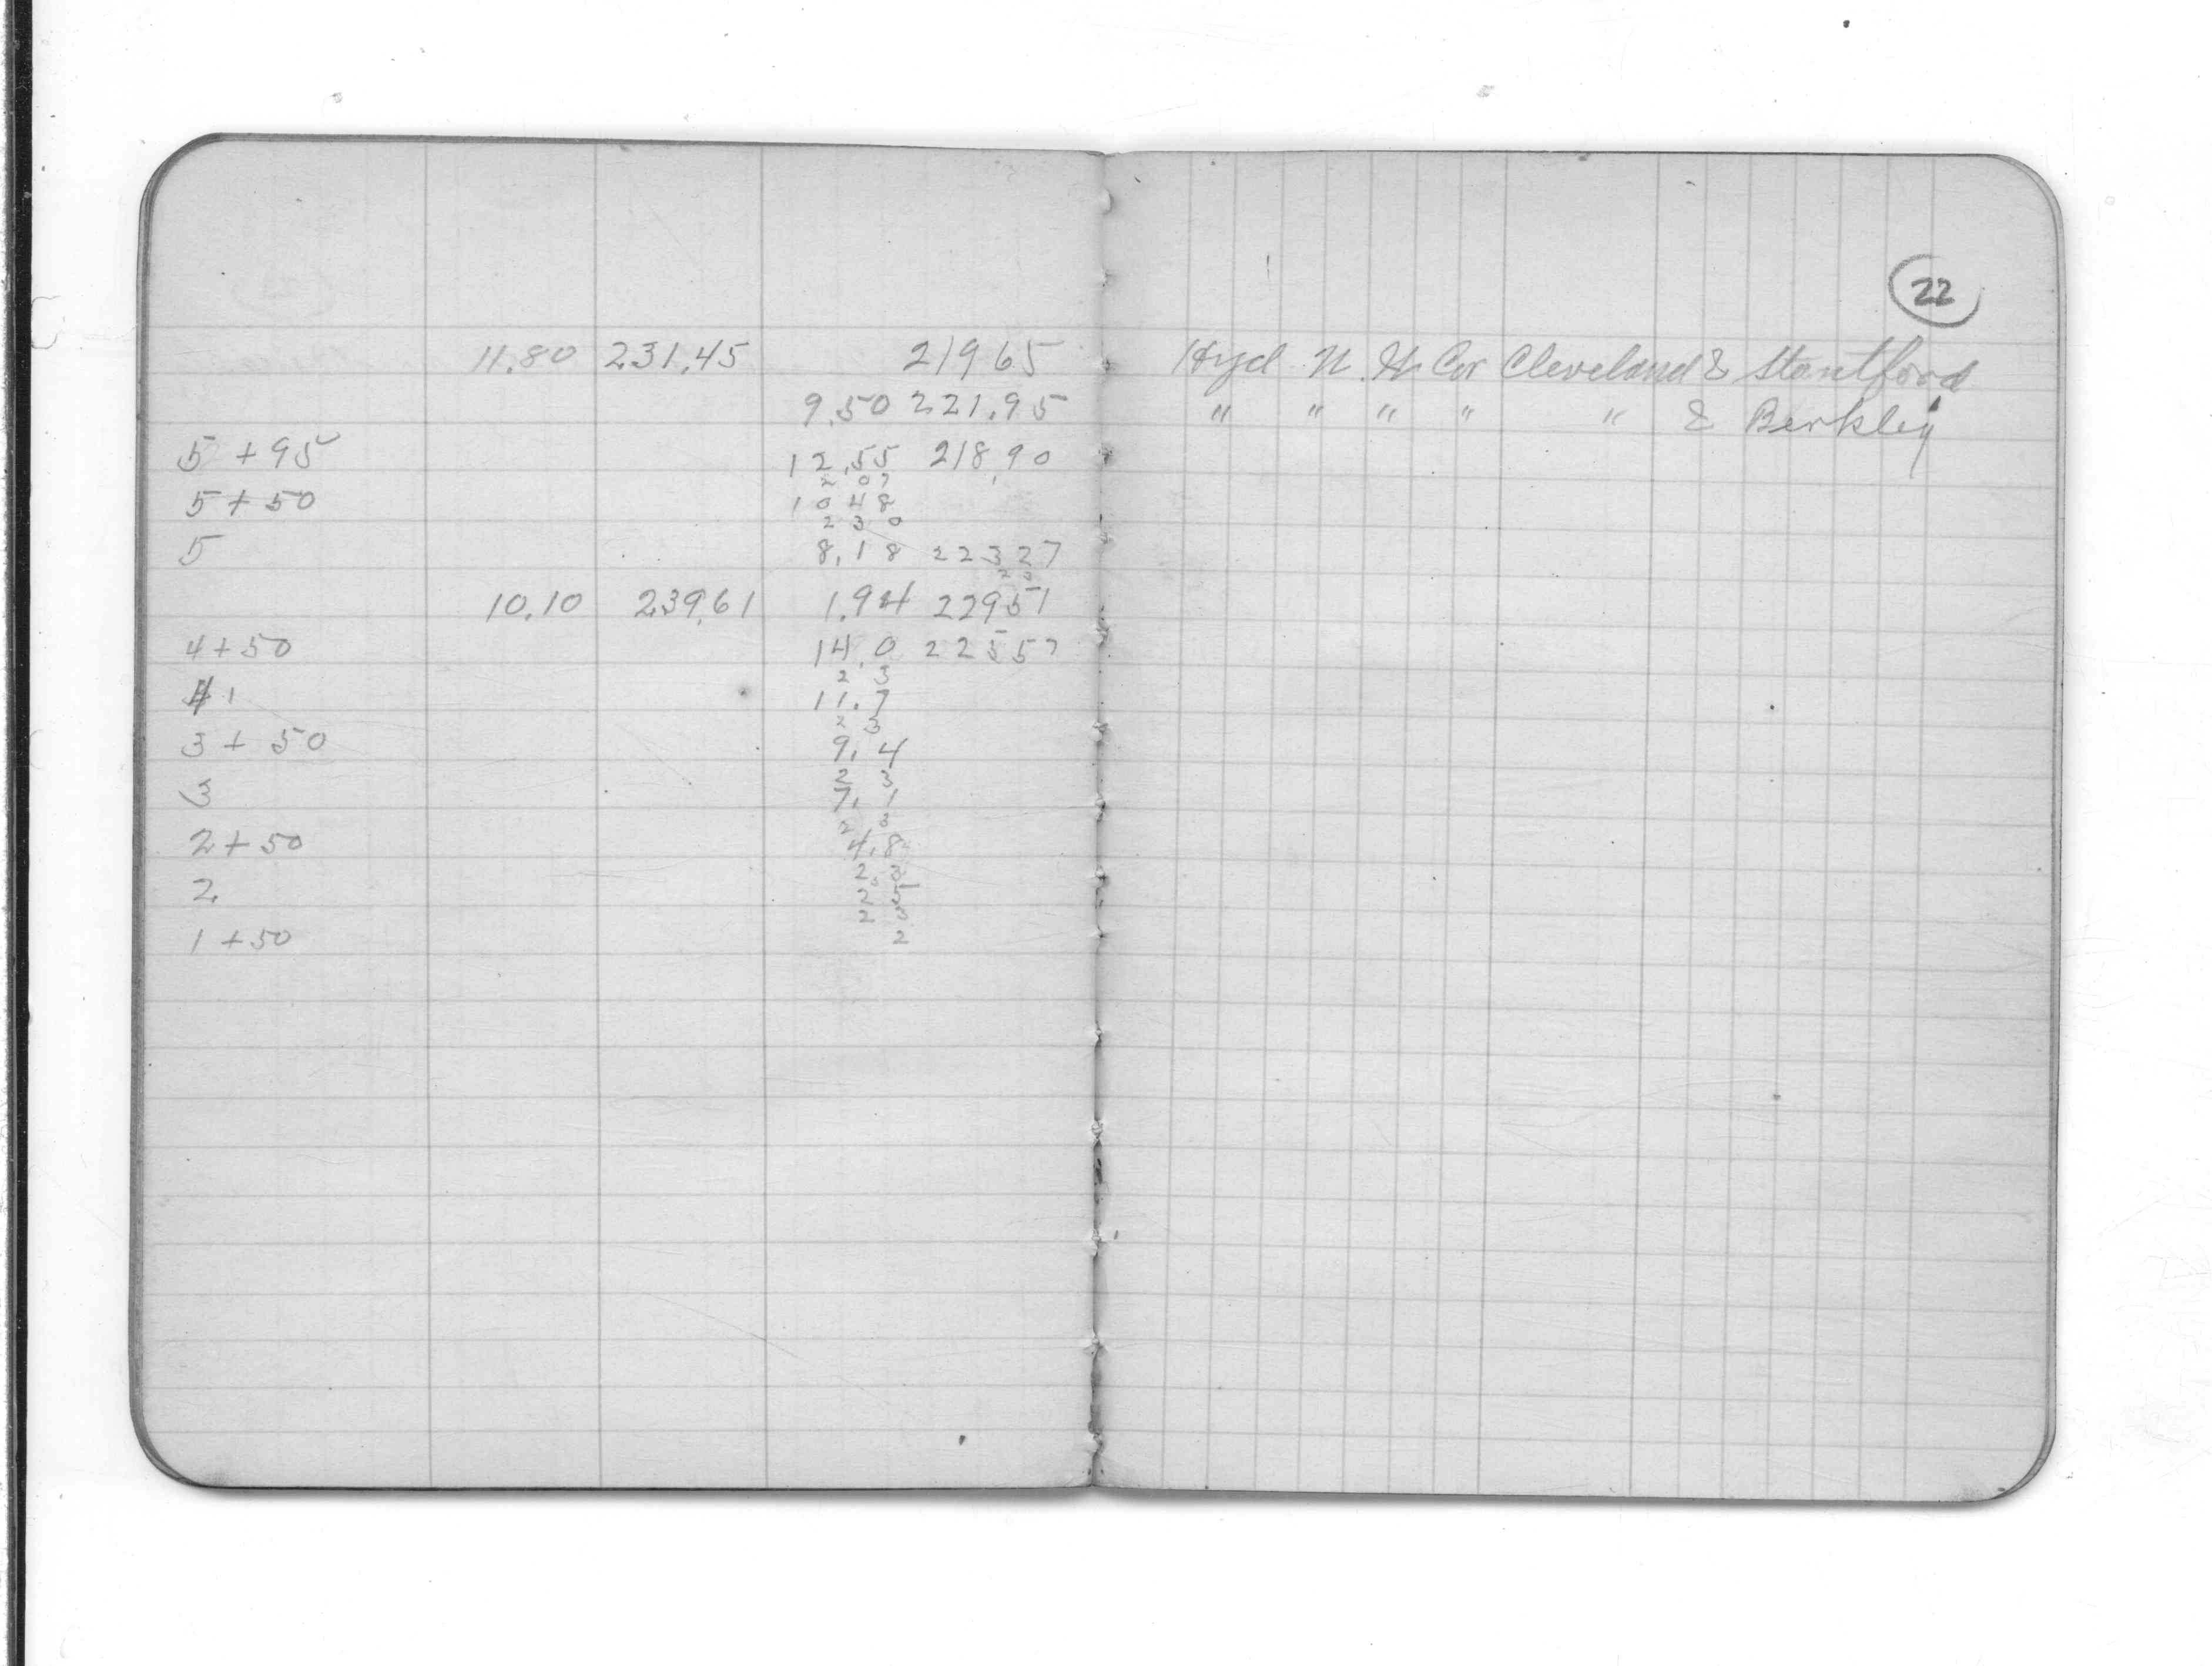 22
11.80 231.45 219 65 Hyd N. W. Cor Cleveland & Stantford
9.50 221.95 " " " " " & Berkley
5 + 95 12.55 218.90
2 07
5 + 50 10 48
2 3 0
5 8.18 223 27
10.10 239.61 1.94 229 51
4 + 50 14.0 225 57
2 3
4 11.7
2 3
3 + 50 9.4
2 3
3 7.1
2 3
2 + 50 4.8
2.3
2 2 5
2 3
1 + 50 2